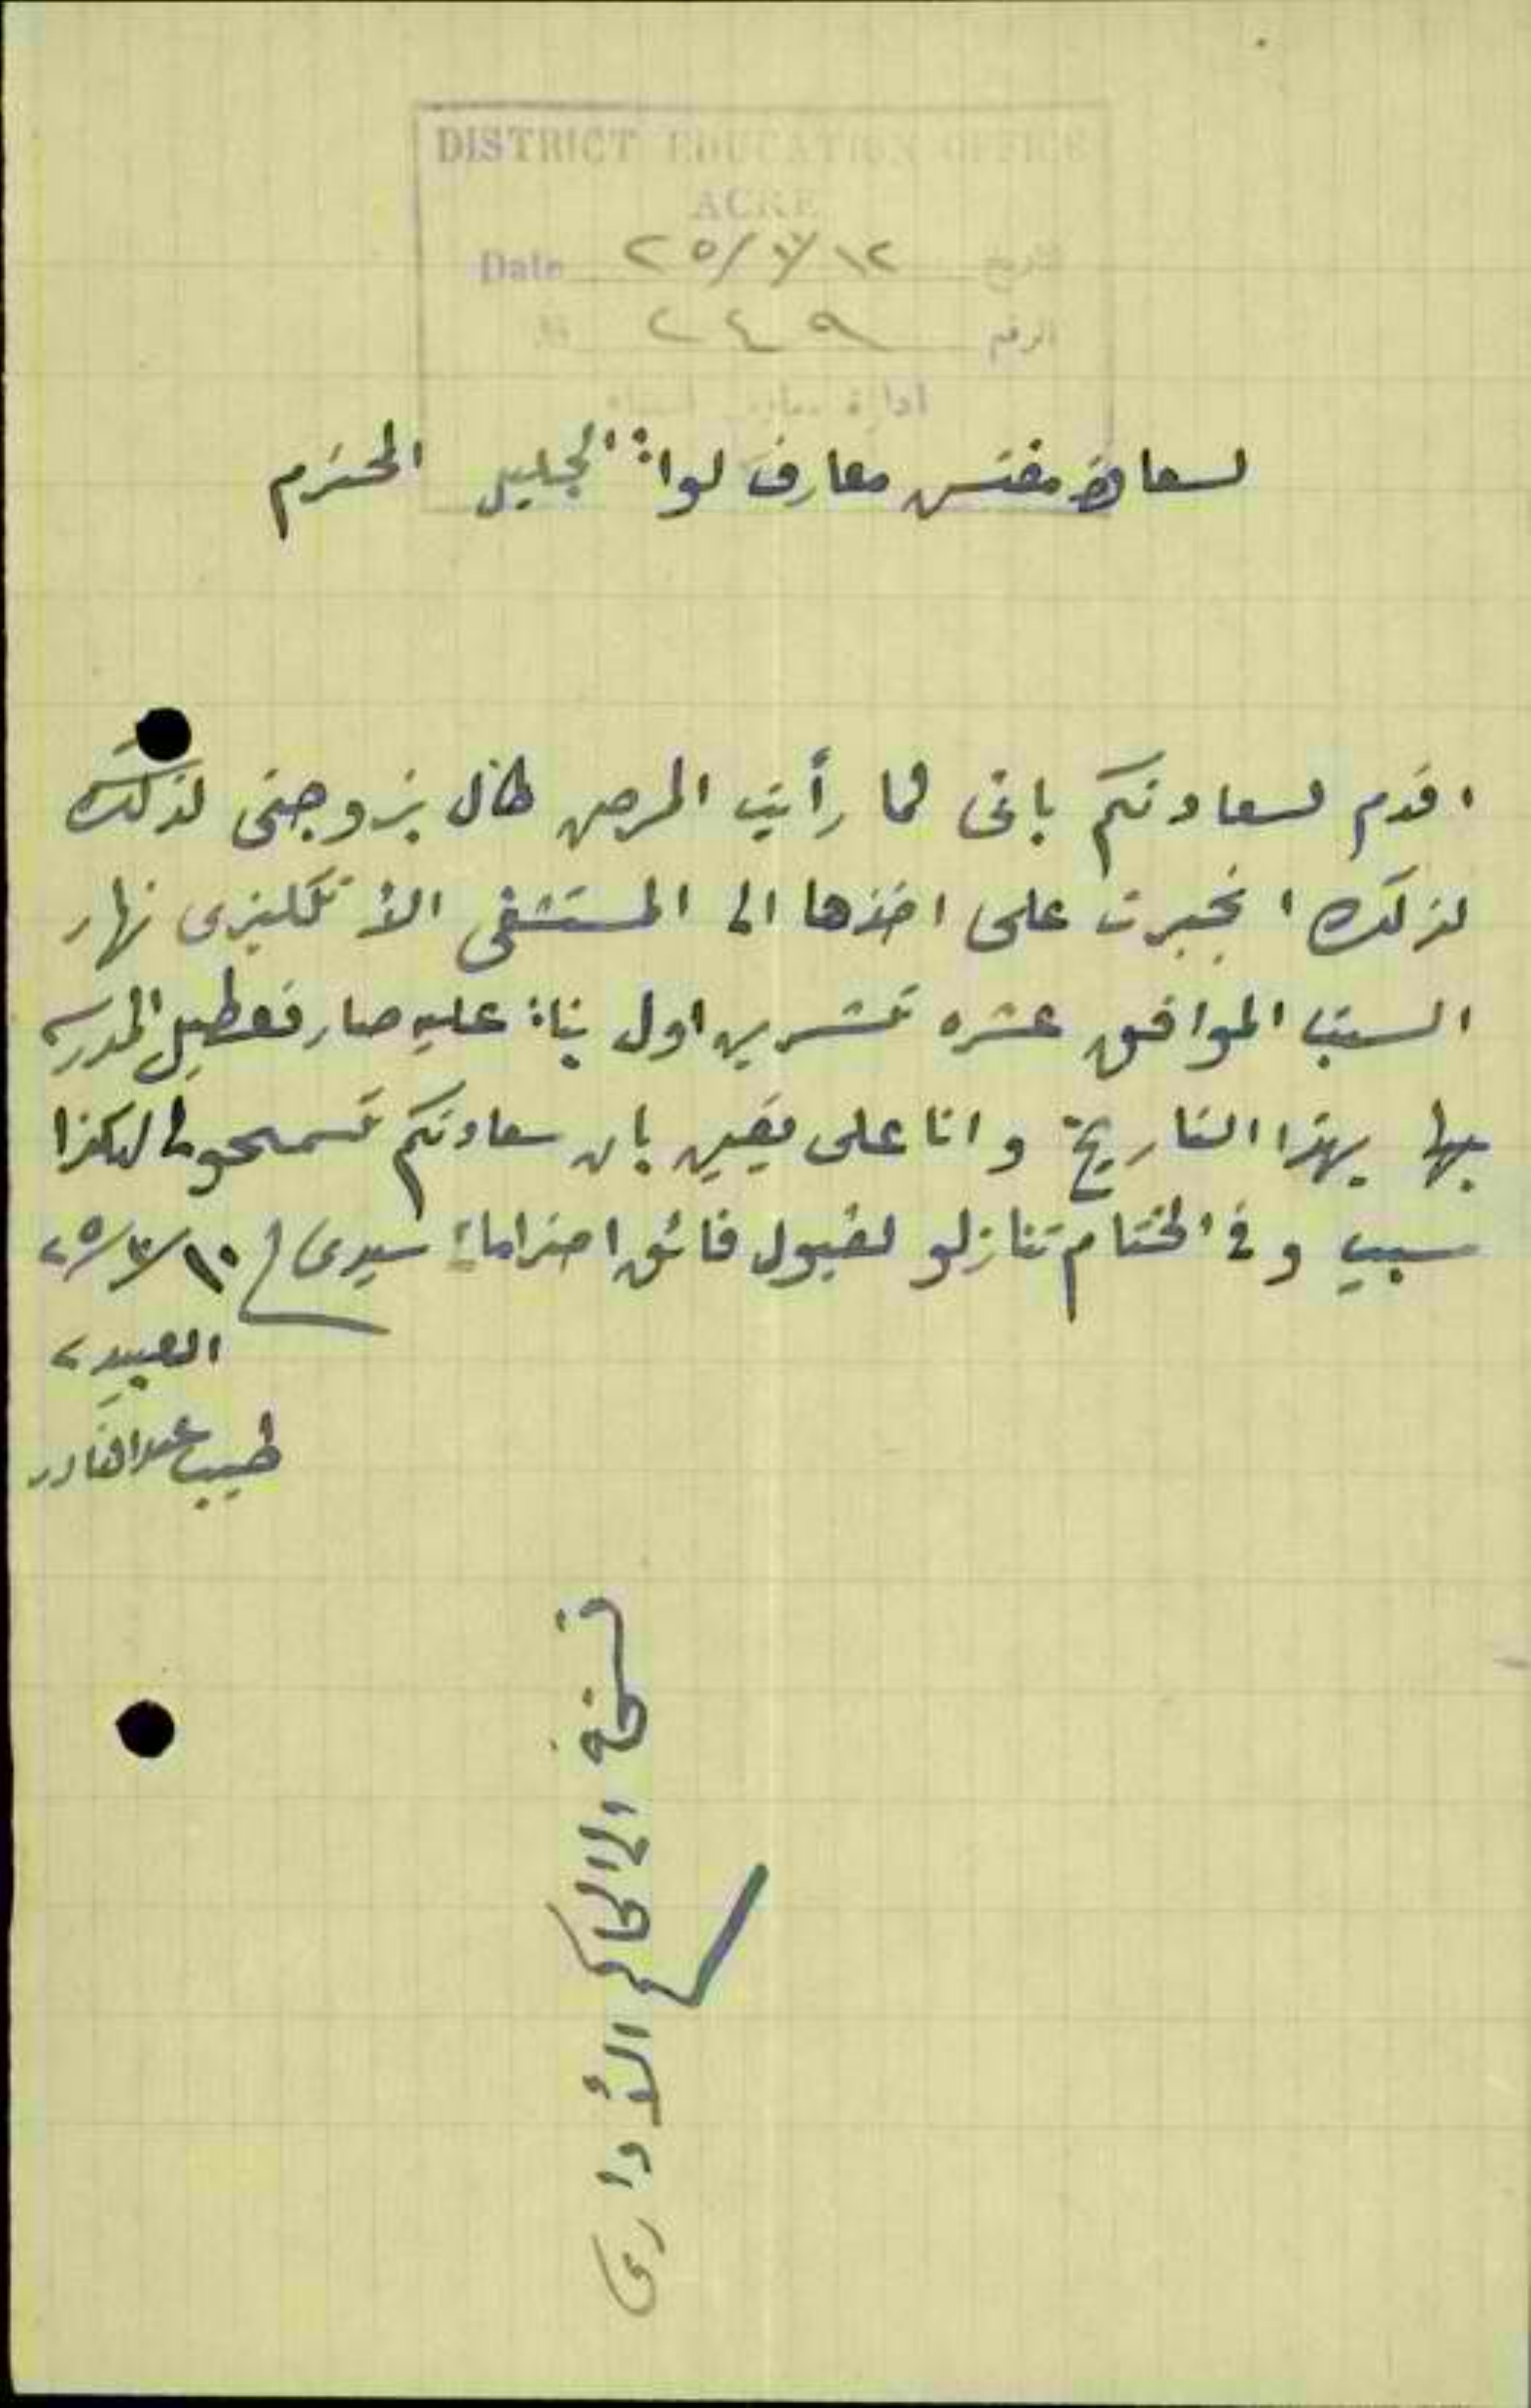 DISTRICT EDUCATION OFFICE
ACRE
Date ٢٥/٧/١٢ تاريخ
٢٤٩ الرقم
ادارة
لسعادة مفتش معارف لواء الجليل المحترم
اقدم لسعادتكم بانى لما رأيت المرض طال بزوجتى لذلك
لذلك انجبرت على اخذها الى المستشفى الأنكليزى نهار
السبت الموافق عشره تشرين اول بناءً عليه صار تعطيل المدرسه
بها بهذا التاريخ وانا على يقين بان سعادتكم تسمحوا لهكذا
سبب وفى الختام تنازلو لقبول فائق احتراماتى سيدى
العبيد
طيب عبدالقادر
نسخة الى الحاكم الأدارى